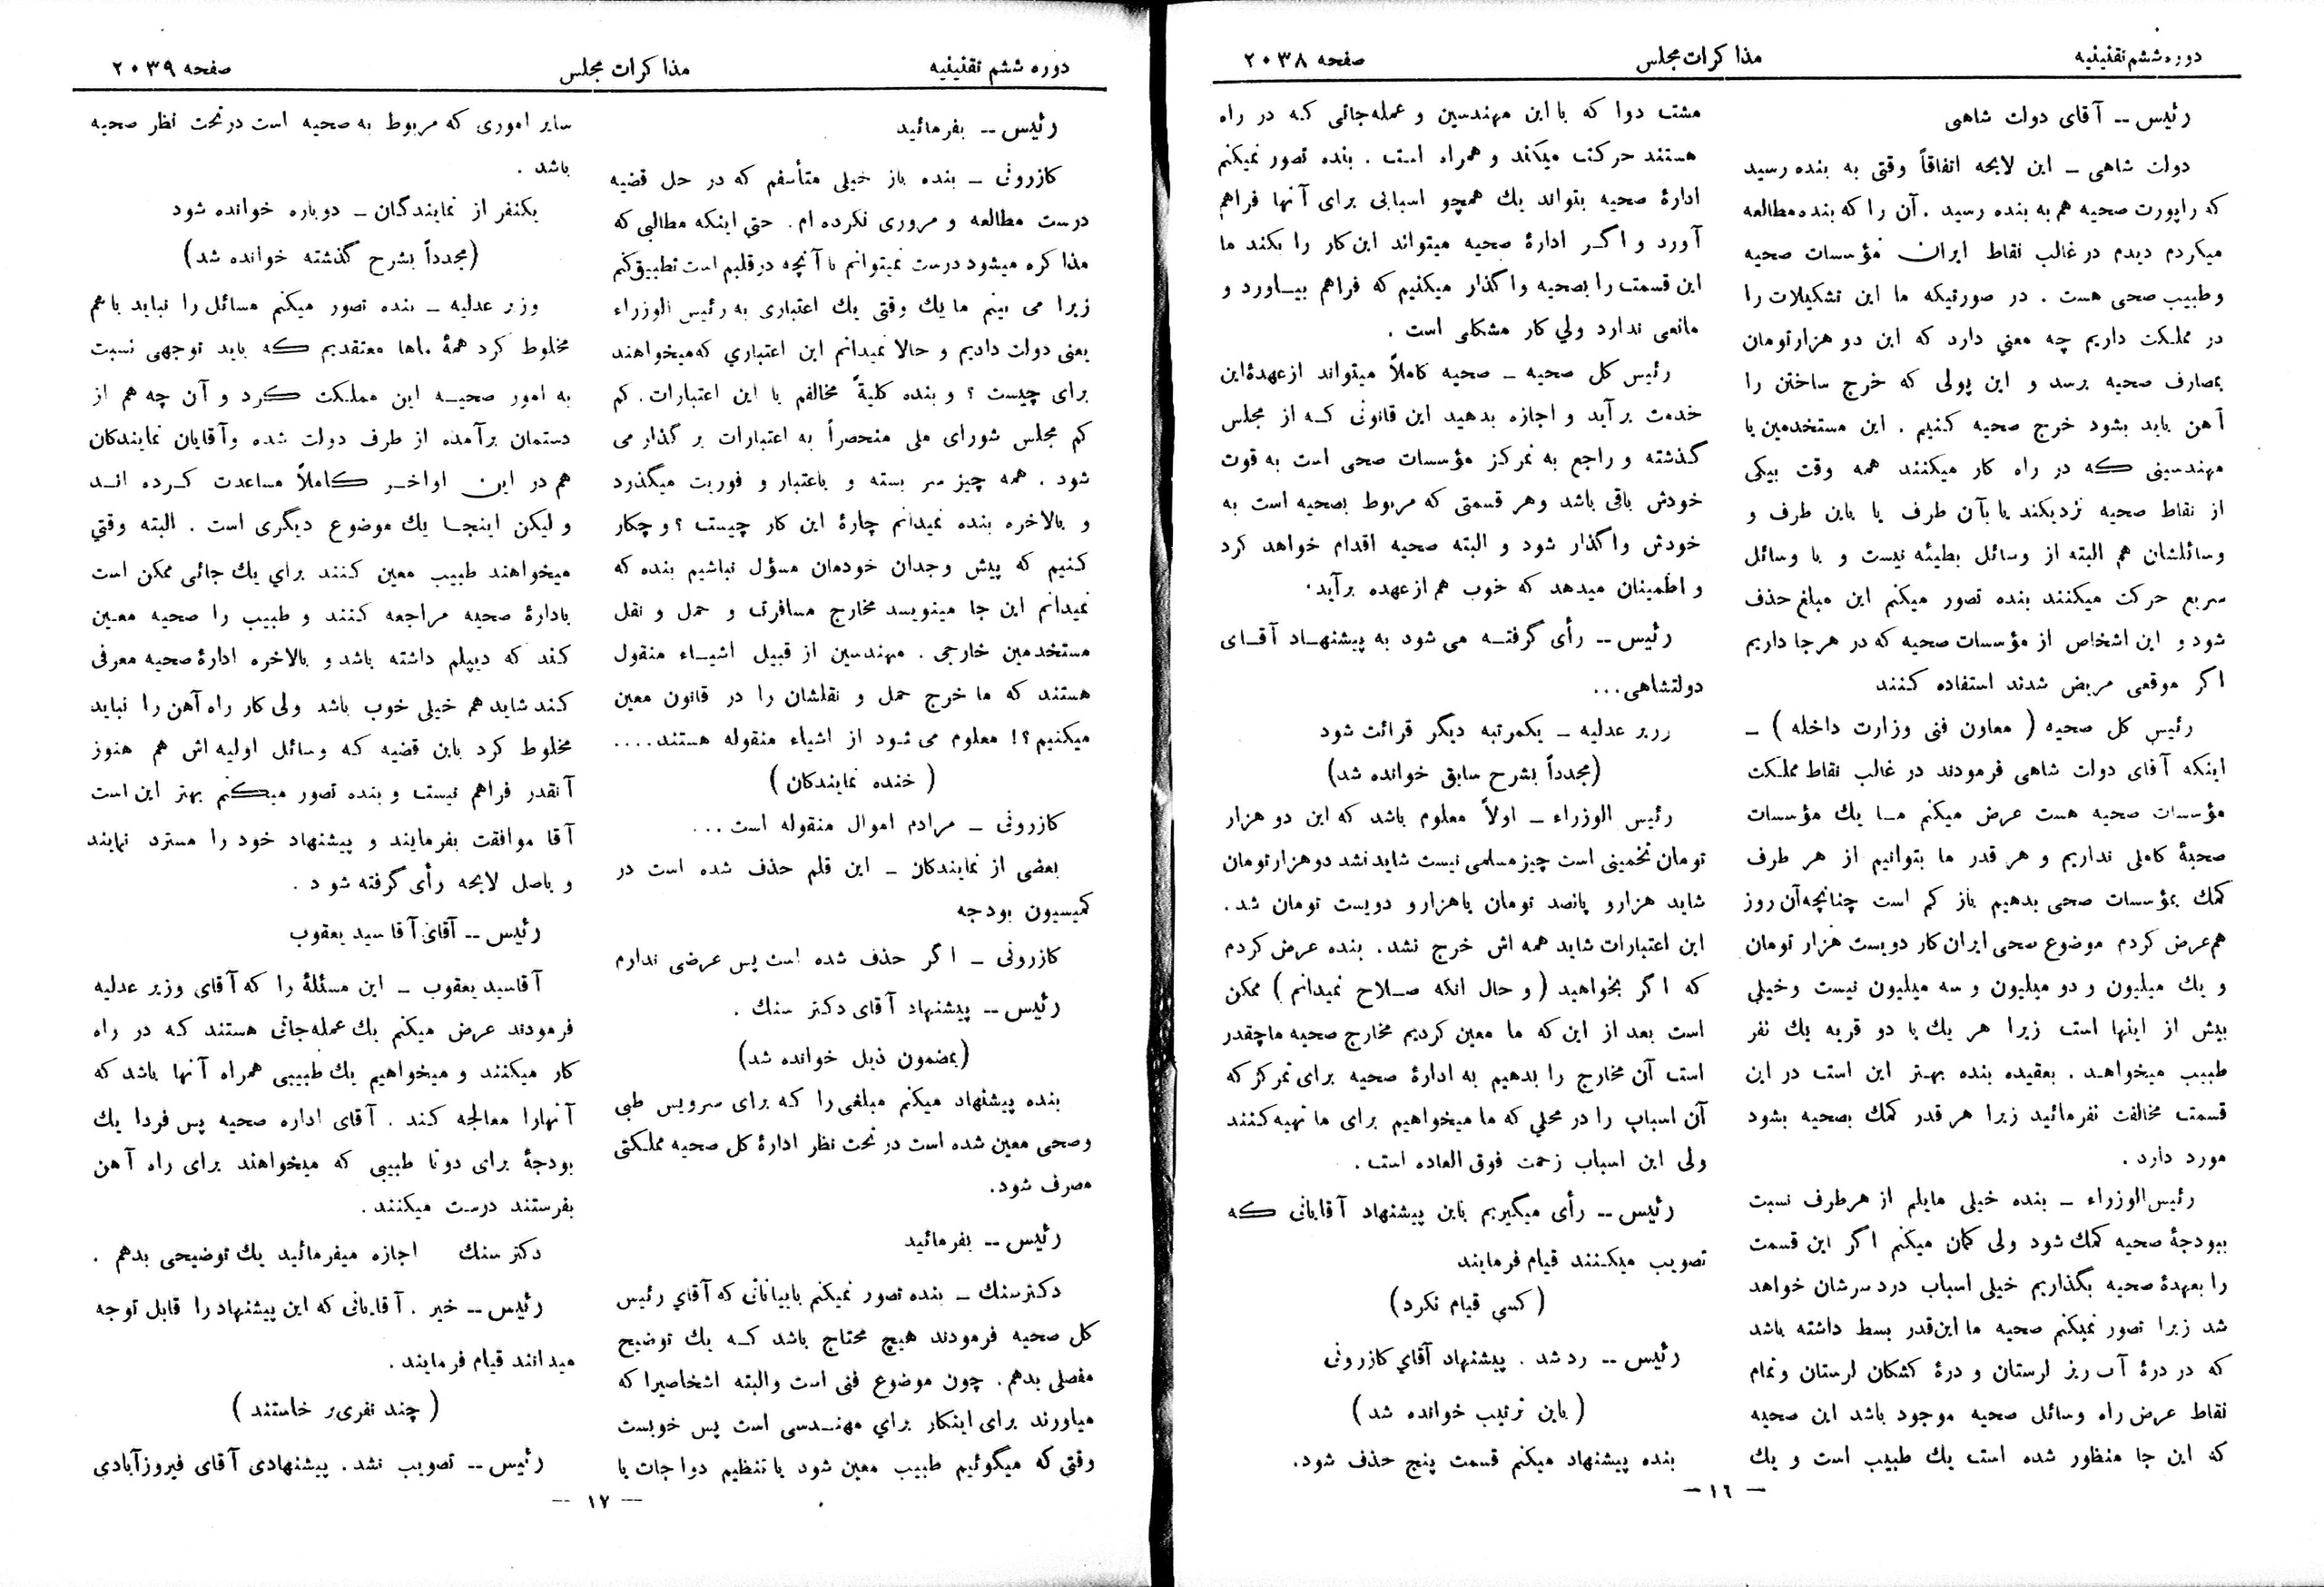 دوره ششم تقنینیه
مذاکرات مجلس
صفحه ۲۰۳۸
رئیس -- آقای دولت شاهی
دولت شاهی ـ این لایحه اتفاقاً وقتی به بنده رسید
که راپورت صحیه هم به بنده رسید . آن را که بنده مطالعه
میکردم دیدم در غالب نقاط ایران مؤسسات صحیه
و طبیب صحی هست . در صورتیکه ما این تشکیلات را
در مملکت داریم چه معنی دارد که این دو هزار تومان
بمصارف صحیه برسد و این پولی که خرج ساختن را
آهن باید بشود خرج صحیه کنیم . این مستخدمین یا
مهندسینی که در راه کار میکنند همه وقت بیکی
از نقاط صحیه نزدیکند یا بآن طرف یا باین طرف و
وسائلشان هم البته از وسائل بطیئه نیست و با وسائل
سریع حرکت میکنند بنده تصور میکنم این مبلغ حذف
شود و این اشخاص از مؤسسات صحیه که در هر جا داریم
اگر موقعی مریض شدند استفاده کنند
رئیس کل صحیه ( معاون فنی وزارت داخله ) ـ
اینکه آقای دولت شاهی فرمودند در غالب نقاط مملکت
مؤسسات صحیه هست عرض میکنم ما یك مؤسسات
صحیهٔ کاملی نداریم و هر قدر ما بتوانیم از هر طرف
کمك بمؤسسات صحی بدهیم باز کم است چنانچه آن روز
هم عرض کردم موضوع صحی ایران کار دویست هزار تومان
و یك میلیون و دو میلیون و سه میلیون نیست و خیلی
بیش از اینها است زیرا هر یك یا دو قریه یك نفر
طبیب میخواهد . بعقیده بنده بهتر این است در این
قسمت مخالفت نفرمائید زیرا هر قدر کمك بصحیه بشود
مورد دارد .
رئیس‌الوزراء ـ بنده خیلی مایلم از هر طرف نسبت
ببودجهٔ صحیه کمك شود ولی گمان میکنم اگر این قسمت
را بعهدهٔ صحیه بگذاریم خیلی اسباب درد سرشان خواهد
شد زیرا تصور نمیکنم صحیه ما این‌قدر بسط داشته باشد
که در درهٔ آب ریز لرستان و درهٔ کشکان لرستان و تمام
نقاط عرض راه وسائل صحیه موجود باشد این صحیه
که این جا منظور شده است یك طبیب است و یك
مشت دوا که با این مهندسین و عمله‌جاتی که در راه
هستند حرکت میکند و همراه است . بنده تصور نمیکنم
ادارهٔ صحیه بتواند یك همچو اسبابی برای آنها فراهم
آورد و اگر ادارهٔ صحیه میتواند این کار را بکند ما
این قسمت را بصحیه واگذار میکنیم که فراهم بیاورد و
مانعی ندارد ولی کار مشکلی است .
رئیس کل صحیه ـ صحیه کاملاً میتواند از عهدهٔ این
خدمت برآید و اجازه بدهید این قانونی که از مجلس
گذشته و راجع به تمرکز مؤسسات صحی است به قوت
خودش باقی باشد و هر قسمتی که مربوط بصحیه است به
خودش واگذار شود و البته صحیه اقدام خواهد کرد
و اطمینان میدهد که خوب هم از عهده برآید.
رئیس -- رأی گرفته می شود به پیشنهاد آقای
دولتشاهی...
وزیر عدلیه ـ یکمرتبه دیگر قرائت شود
(مجدداً بشرح سابق خوانده شد)
رئیس الوزراء ـ اولاً معلوم باشد که این دو هزار
تومان تخمینی است چیز مسلمی نیست شاید نشد دو هزار تومان
شاید هزار و پانصد تومان یا هزار و دویست تومان شد .
این اعتبارات شاید همه اش خرج نشد . بنده عرض کردم
که اگر بخواهید ( و حال انکه صلاح نمیدانم ) ممکن
است بعد از این که ما معین کردیم مخارج صحیه ما چقدر
است آن مخارج را بدهیم به ادارهٔ صحیه برای تمرکز که
آن اسباب را در محلی که ما میخواهیم برای ما تهیه کنند
ولی این اسباب زحمت فوق العاده است .
رئیس -- رأی میگیریم باین پیشنهاد آقایانی که
تصویب میکنند قیام فرمایند
( کسی قیام نکرد )
رئیس -- رد شد . پیشنهاد آقای کازرونی
( باین ترتیب خوانده شد )
بنده پیشنهاد میکنم قسمت پنج حذف شود.
— ١٦ —
دوره ششم تقنینیه
مذاکرات مجلس
صفحه ۲۰۳۹
رئیس -- بفرمائید
کازرونی ـ بنده باز خیلی متأسفم که در حل قضیه
درست مطالعه و مروری نکرده ام . حتی اینکه مطالبی که
مذاکره میشود درست نمیتوانم با آنچه در قلبم است تطبیق کنم
زیرا می بینم ما یك وقتی یك اعتباری به رئیس الوزراء
یعنی دولت دادیم و حالا نمیدانم این اعتباری که میخواهند
برای چیست ؟ و بنده کلیةً مخالفم با این اعتبارات . کم
کم مجلس شورای ملی منحصراً به اعتبارات بر گذار می
شود . همه چیز سر بسته و باعتبار و فوریت میگذرد
و بالاخره بنده نمیدانم چارهٔ این کار چیست ؟ و چکار
کنیم که پیش وجدان خودمان مسؤل نباشیم بنده که
نمیدانم این جا مینویسد مخارج مسافرت و حمل و نقل
مستخدمین خارجی . مهندسین از قبیل اشیاء منقول
هستند که ما خرج حمل و نقلشان را در قانون معین
میکنیم ؟! معلوم می شود از اشیاء منقوله هستند....
( خنده نمایندگان )
کازرونی ـ مرادم اموال منقوله است ...
بعضی از نمایندگان ـ این قلم حذف شده است در
کمیسیون بودجه
کازرونی ـ اگر حذف شده است پس عرضی ندارم
رئیس -- پیشنهاد آقای دکتر سنك .
(بمضمون ذیل خوانده شد)
بنده پیشنهاد میکنم مبلغی را که برای سرویس طبی
و صحی معین شده است در تحت نظر ادارهٔ کل صحیه مملکتی
مصرف شود.
رئیس -- بفرمائید
دکتر سنك ـ بنده تصور نمیکنم بابیاناتی که آقای رئیس
کل صحیه فرمودند هیچ محتاج باشد که یك توضیح
مفصلی بدهم . چون موضوع فنی است والبته اشخاصیرا که
میاورند برای اینکار برای مهندسی است پس خوبست
وقتی که میگوئیم طبیب معین شود یا تنظیم دواجات یا
سایر اموری که مربوط به صحیه است در تحت نظر صحیه
باشد .
یکنفر از نمایندگان ـ دوباره خوانده شود
(مجدداً بشرح گذشته خوانده شد)
وزیر عدلیه ـ بنده تصور میکنم مسائل را نباید با هم
مخلوط کرد همهٔ ماها معتقدیم که باید توجهی نسبت
به امور صحیه این مملکت کرد و آن چه هم از
دستمان برآمده از طرف دولت شده و آقایان نمایندگان
هم در این اواخر کاملاً مساعدت کرده اند
و لیکن اینجا یك موضوع دیگری است . البته وقتی
میخواهند طبیب معین کنند برای یك جائی ممکن است
بادارهٔ صحیه مراجعه کنند و طبیب را صحیه معین
کند که دیپلم داشته باشد و بالاخره ادارهٔ صحیه معرفی
کند شاید هم خیلی خوب باشد ولی کار راه آهن را نباید
مخلوط کرد باین قضیه که وسائل اولیه اش هم هنوز
آنقدر فراهم نیست و بنده تصور میکنم بهتر این است
آقا موافقت بفرمایند و پیشنهاد خود را مسترد نمایند
و باصل لایحه رأی گرفته شود .
رئیس -- آقای آقا سید یعقوب
آقاسید یعقوب ـ این مسئلهٔ را که آقای وزیر عدلیه
فرمودند عرض میکنم یك عمله‌جاتی هستند که در راه
کار میکنند و میخواهیم یك طبیبی همراه آنها باشد که
آنهارا معالجه کند . آقای اداره صحیه پس فردا یك
بودجهٔ برای دوتا طبیبی که میخواهند برای راه آهن
بفرستند درست میکنند .
دکتر سنك اجازه میفرمائید یك توضیحی بدهم .
رئیس -- خیر . آقایانی که این پیشنهاد را قابل توجه
میدانند قیام فرمایند .
( چند نفری بر خاستند )
رئیس -- تصویب نشد . پیشنهادی آقای فیروزآبادی
— ١٧ —